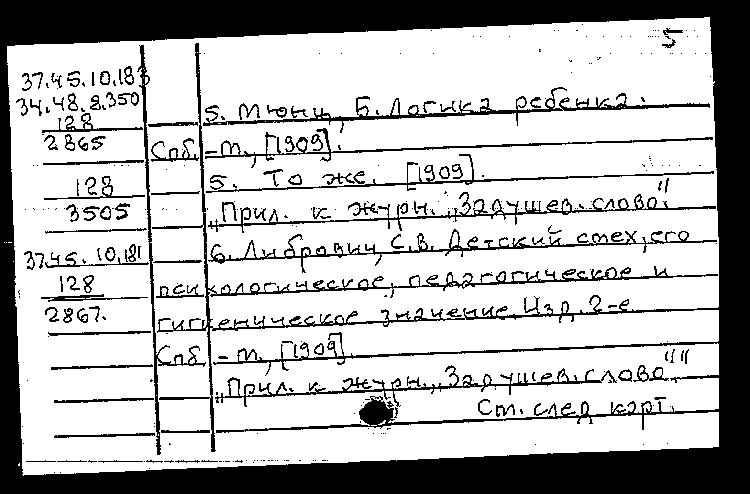 5
37.45.10.183
34.48.8.350
128
2865
5. Мюнц, Б. Логика ребенка.
Спб. - М., [1909].
128
3505
5. То же. [1909].
„Прил. к журн. „Задушев. слово".
37.45.10.181
128
2867.
6. Либрович, С.В. Детский смех, его
психологическое, педагогическое и
гигиеническое значение. Изд. 2-е.
Спб. - М., [1909].
„Прил. к журн. „Задушев. слово"."
См. след карт.